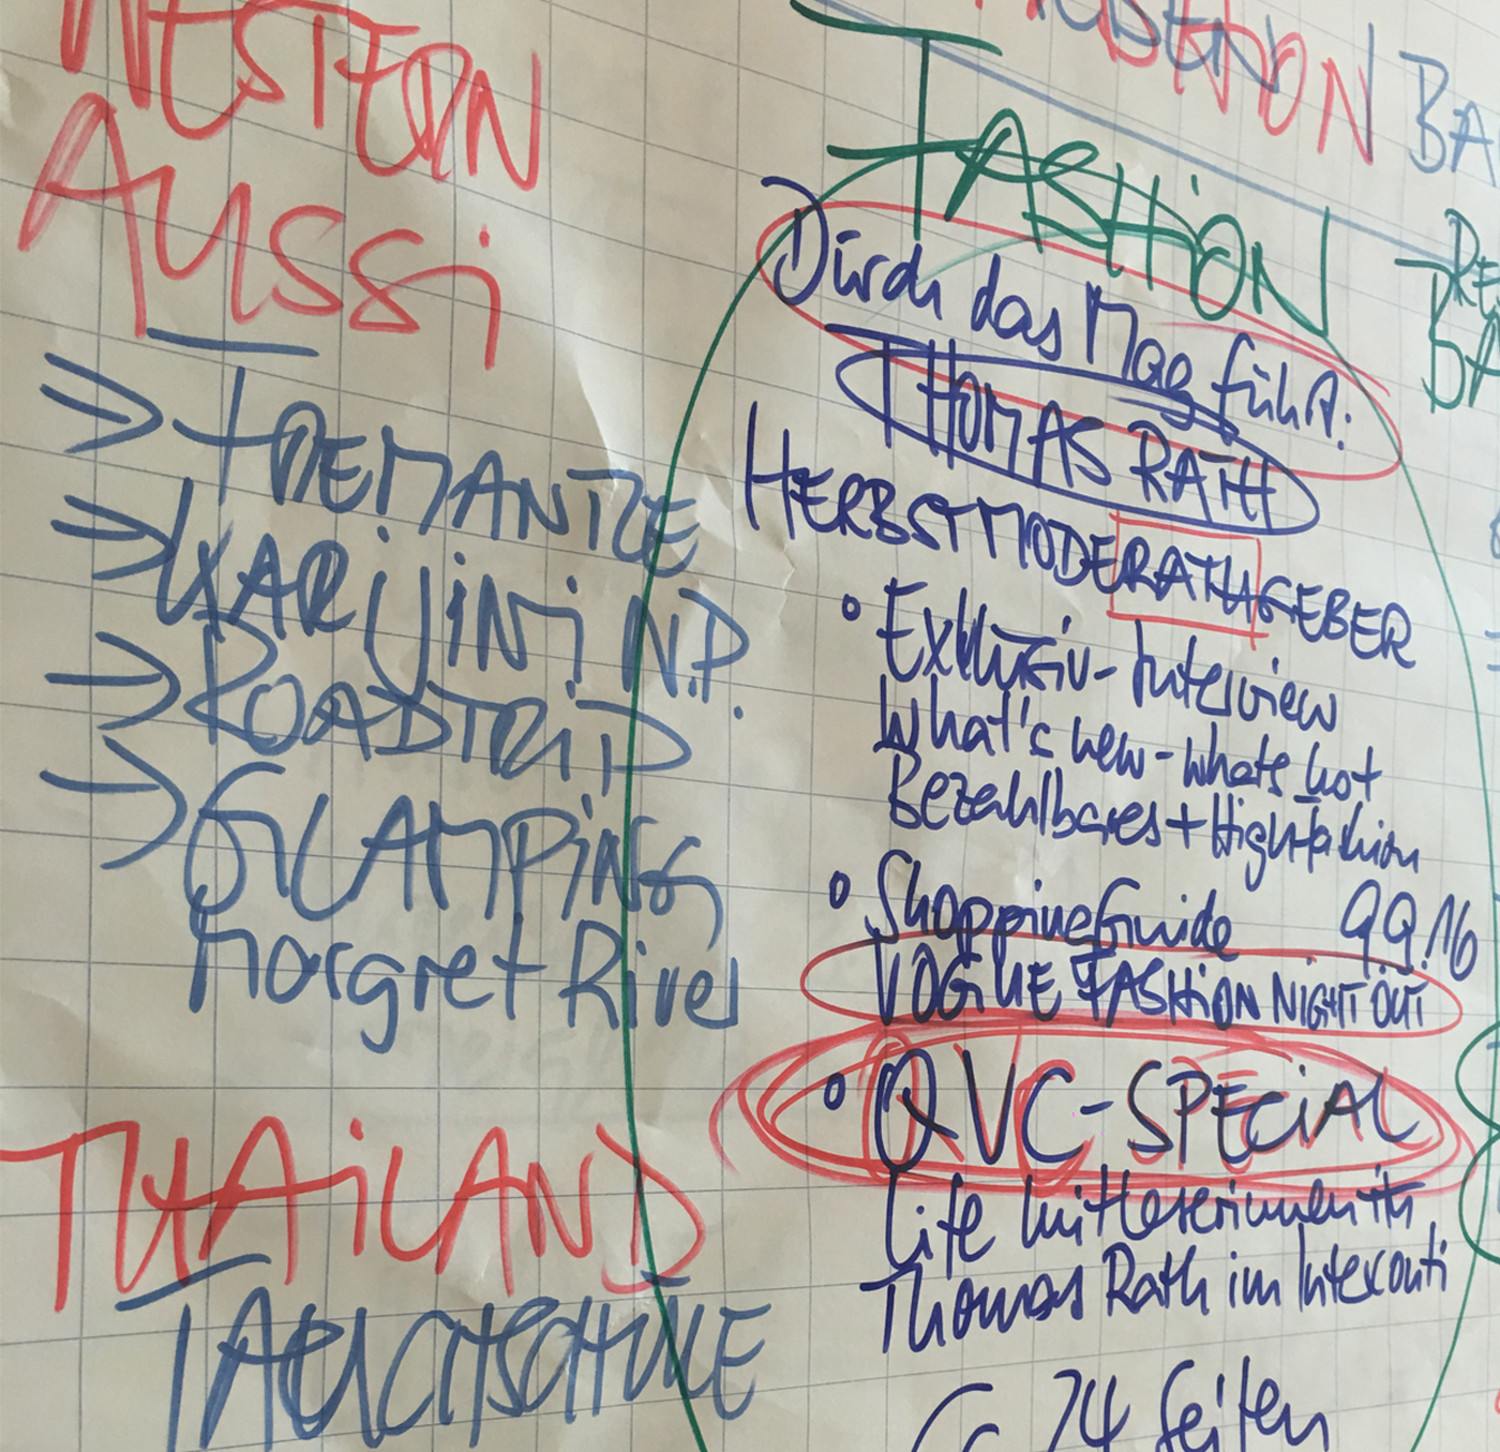 WESTERN
AUSSi
⇒ FREMANTLE
⇒ KARIJINI N.P.
⇒ ROADTRIP
→ GLAMPING
Margret River
THAILAND
TAUCHSCHULE
FASHION
Durch das Mag führt:
THOMAS RATH
HERBSTMODERATHGEBER
• Exklusiv-Interview
What's new - whats hot
Bezahlbares + High-Fashion
• Shopping Guide 9.9.16
VOGUE FASHION NIGHT OUT
• QVC-SPECIAL
Life mit Leserinnen
Thomas Rath im Interconti
24 Seiten
BA
BA